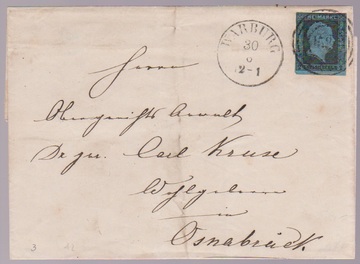 WARBURG
30
8
12-1
FREIMARKE
Herrn
Obergerichts Anwalt
Dr jur. Carl Kruse
Wohlgeboren
in
Osnabrück.